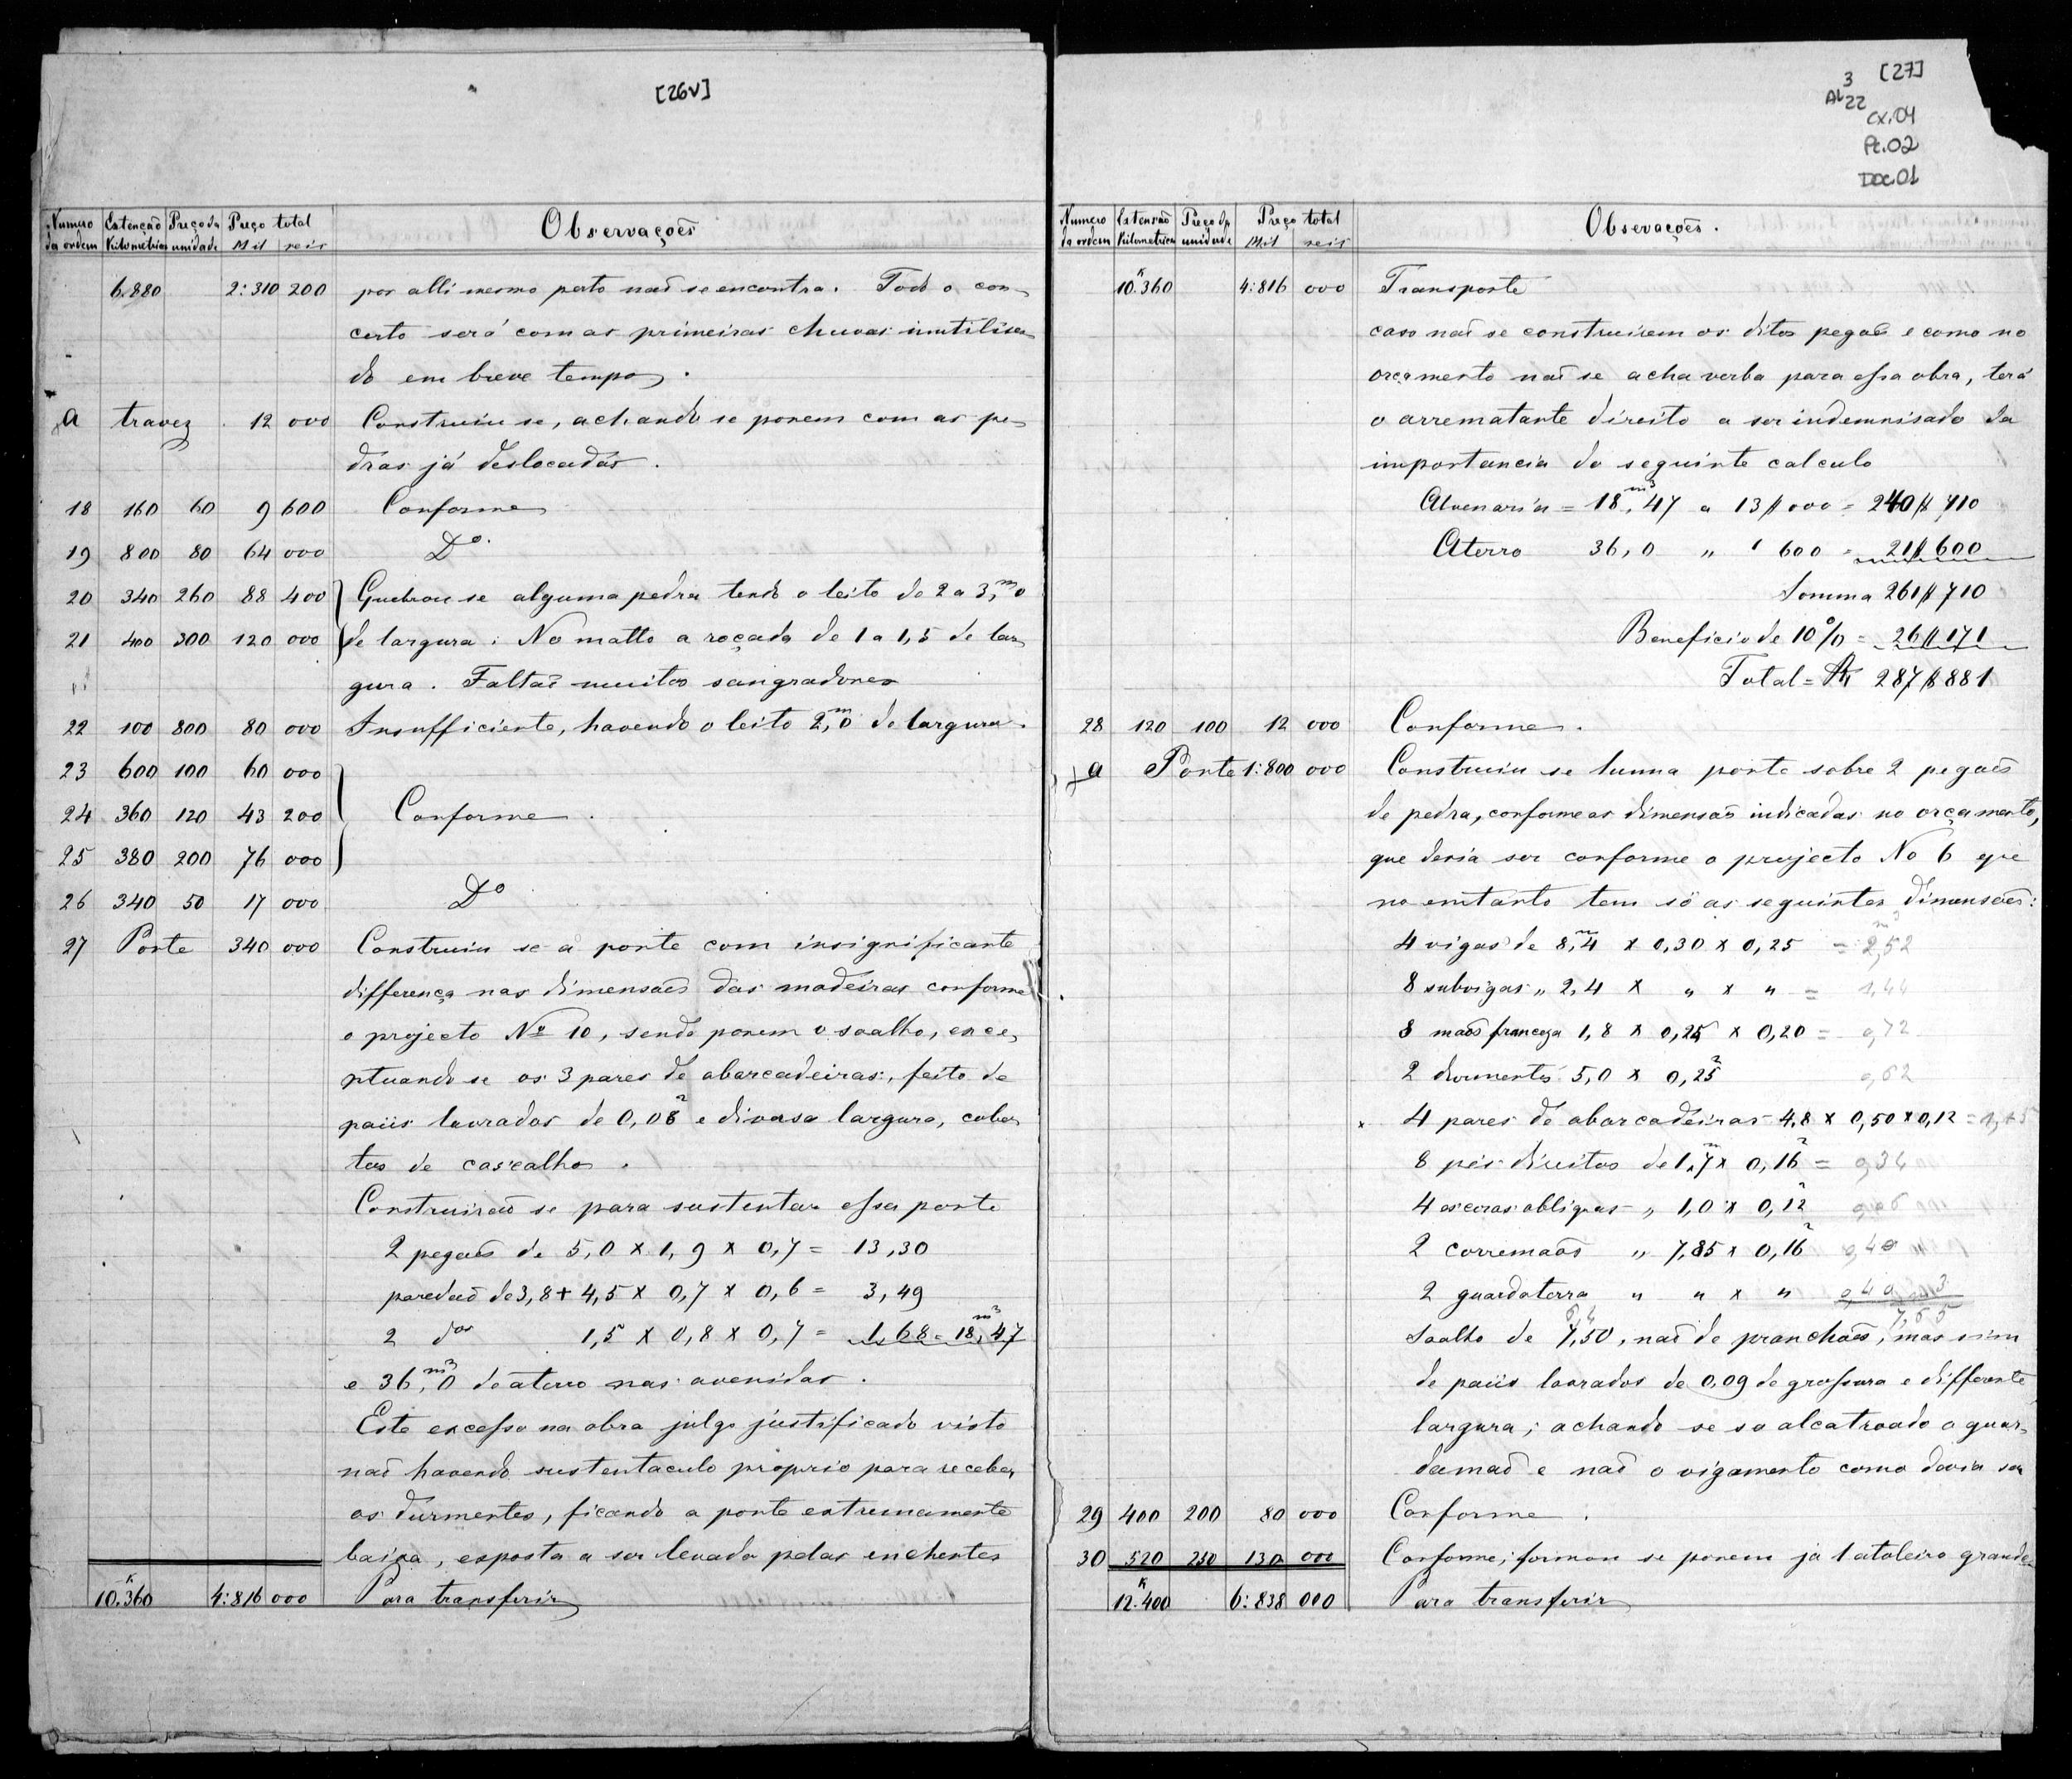 [26V]
Numero da ordem | Estenção Kilometrica | Preço da unidade | Preço total Mil reis | Observações
6.880 2:310 200 por alli mesmo perto naõ se encontra. Todo o con-
certo será com as primeiras chuvas inutilisa-
do em breve tempo.
a travez 12 000 Construiu se, achando se porem com as pe-
dras já deslocadas.
18 160 60 9 600 Conforme
19 800 80 64 000 Dº.
20 340 260 88 400 Quebrou se alguma pedra tendo o leito de 2 a 3,ᵐ0
21 400 300 120 000 de largura. No matto a roçada de 1 a 1,5 de lar-
gura. Faltaõ muitos sangradores
22 100 800 80 000 Insufficiente, havendo o leito 2,ᵐ0 de largura.
23 600 100 60 000
24 360 120 43 200 Conforme.
25 380 200 76 000
26 340 50 17 000 Dº
27 Ponte 340 000 Construiu se a ponte com insignificante
differença nas dimensoẽs das madeiras conforme
o projecto Nº 10, sendo porem o soalho, exce-
ptuando se os 3 pares de abarcadeiras, feito de
paüs lavrados de 0,08² e diversa largura, cober-
tos de cascalho.
Construiraõ se para sustentar essa ponte
2 pegoẽs de 5,0 x 1,9 x 0,7 = 13,30
paredaõ de 3,8 + 4,5 x 0,7 x 0,6 = 3,49
2 dos 1,5 x 0,8 x 0,7 = 1,68 = 18,ᵐ³47
e 36,ᵐ³0 de aterro nas avenidas.
Este excesso na obra julgo justificado visto
naõ havendo sustentaculo proprio para receber
os durmentes, ficando a ponte extremamente
baixa, exposta a ser levada pelas enchentes
10.ᴷ360 4:816 000 Para transferir
[27]
3
AL 22
cx.04
Pt.02
Doc.01
Numero da ordem | Extensão Kilometrica | Preço da unidade | Preço total Mil reis | Observações.
10.ᴷ360 4:816 000 Transporte
caso naõ se construirem os ditos pegoẽs e como no
orçamento naõ se acha verba para essa obra, terá
o arrematante direito a ser indemnisado da
importancia do seguinte calculo
Alvenaria = 18,ᵐ³47 a 13$000 = 240$710
Aterro 36,0 " " 600 = 21$600
Somma 261$710
Beneficio de 10% = 26$171
Total = R 287$881
28 120 100 12 000 Conforme.
a Ponte 1:800 000 Construiu se huma ponte sobre 2 pegoẽs
de pedra, conforme as dimensoẽs indicadas no orçamento,
que devia ser conforme o projecto No 6 que
no emtanto tem só as seguintes dimensoẽs:
4 vigas de 8,ᵐ4 x 0,30 x 0,25 = 2,ᵐ³52
8 subvigas " 2,4 x " x " = 1,44
8 maõs franceza 1,8 x 0,25 x 0,20 = 0,72
2 durmentes 5,0 x 0,25² 0,62
4 pares de abarcadeiras 4,8 x 0,50 x 0,12 =
8 pés direitos de 1,ᵐ7 x 0,16² = 0,34
4 escoras obliquas " 1,0 x 0,12² 0,06
2 corremaõs " 7,85 x 0,16² 0,40
2 guardaterra " " x " 0,40
7,65
Soalho de 7,50, naõ de pranchoẽs, mas sim
de paüs lavrados de 0,09 de grossura e differente
largura; achando se so alcatroado o guar-
damaõ e naõ o vigamento como devia ser
29 400 200 80 000 Conforme.
30 520 250 130 000 Conforme; formou se porem já 1 atoleiro grande
12.ᴷ400 6:838 000 Para transferir